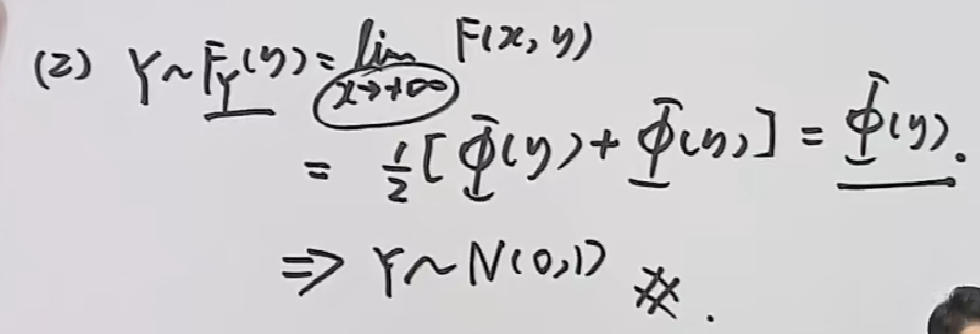 (2) Y~F_Y(y)=lim_{x→+∞} F(x, y)
= 1/2[Φ(y)+Φ(y)]=Φ(y).
⇒ Y~N(0,1) ※.